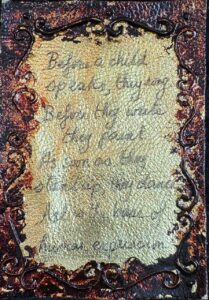 Before a child
speaks, they sing
Before they write
they paint
As soon as they
stand up they dance
Art is the basis of
human expression